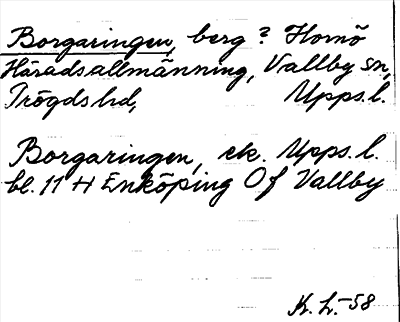 Borgaringen, berg? Hornö
Häradsallmänning, Vallby sn,
Trögds hd, Upps. l.
Borgaringen, ek. Upps. l.
bl. 11 H Enköping Of Vallby
K. L. -58